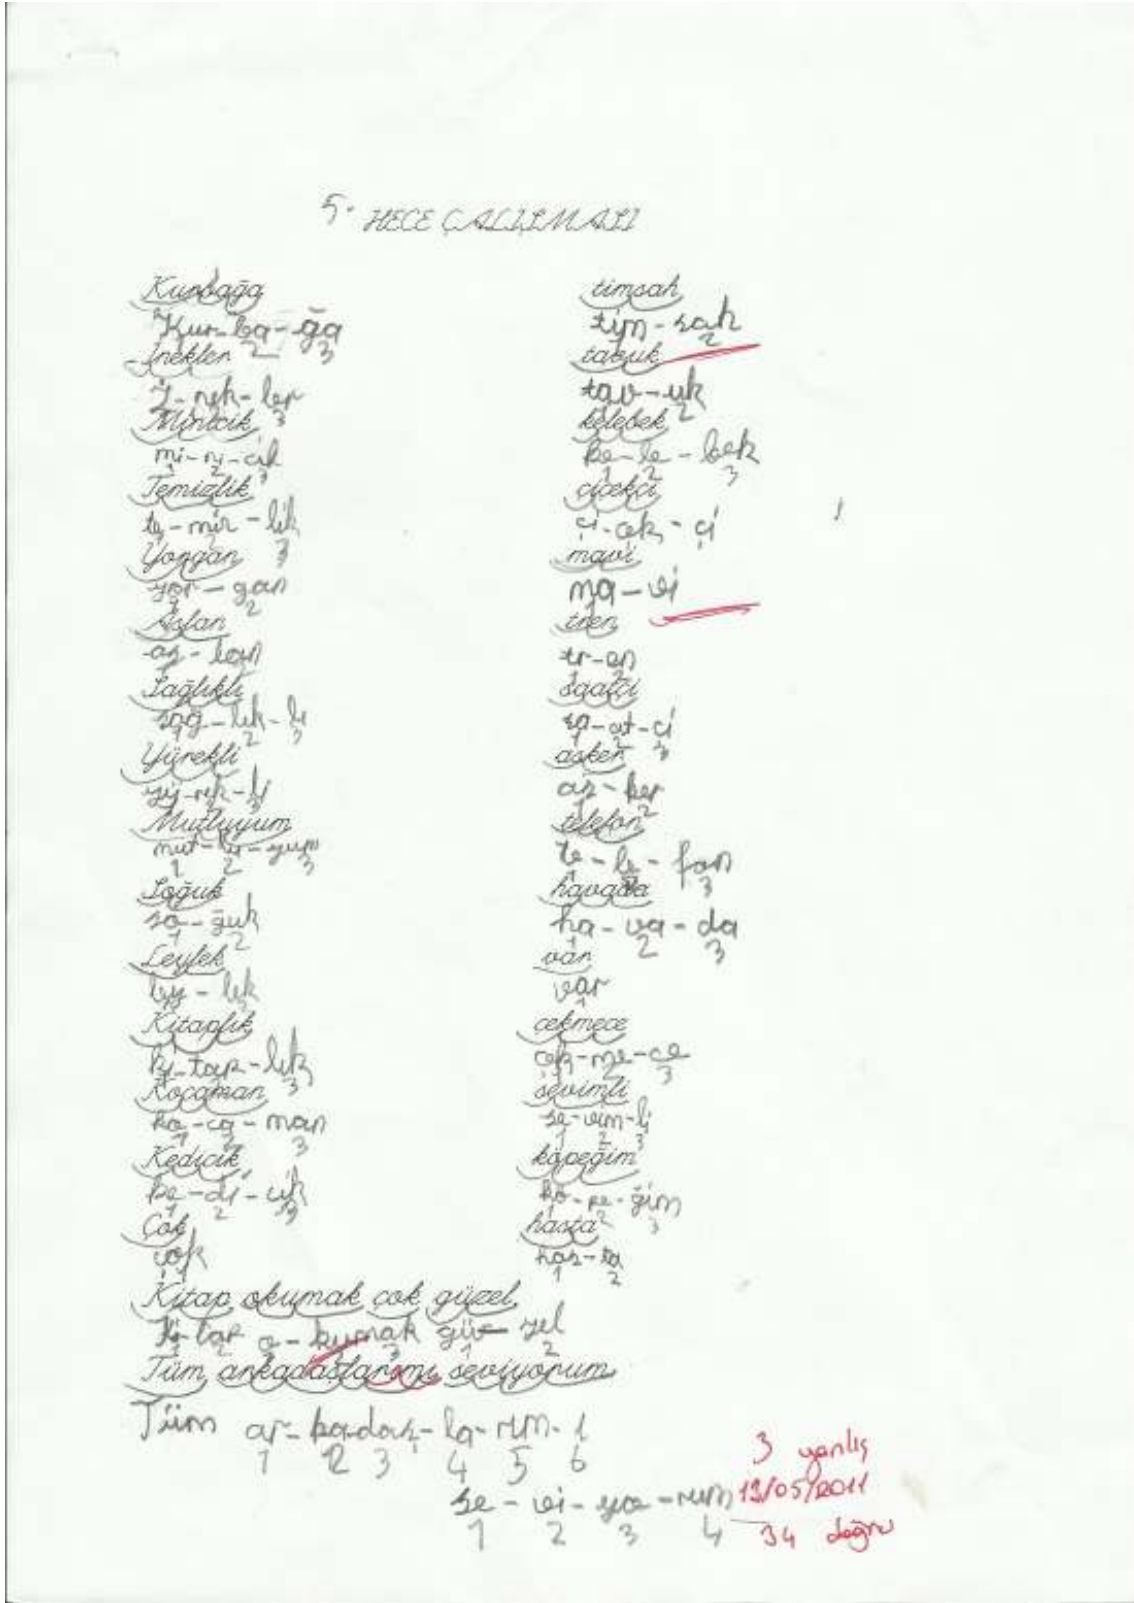 5. HECE ÇALIŞMASI
Kurbağa
Kur-ba-ğa
2 3
İnekler
İ-nek-ler
3
Minicik
mi-ni-cik
1 2 3
Temizlik
te-miz-lik
3
Yorgan
yor-gan
1 2
Aslan
as-lan
Sağlıklı
sağ-lık-lı
1 2 3
Yürekli
yü-rek-li
Mutluyum
mut-lu-yum
1 2 3
Soğuk
so-ğuk
1 2
Leylek
ley-lek
Kitaplık
ki-tap-lık
3
Kocaman
ko-ca-man
1 2 3
Kedicik
ke-di-cik
1 2 3
Çok
çok
1
timsah
tim-sah
2
tavuk
tav-uk
2
kelebek
ke-le-bek
1 2 3
çiçekçi
çi-çek-çi
mavi
ma-vi
tren
tr-en
saatçi
sa-at-çi
1 2 3
asker
as-ker
1 2
telefon
te-le-fon
1 2 3
havada
ha-va-da
1 2 3
var
var
1
çekmece
çek-me-ce
1 2 3
sevimli
se-vim-li
1 2 3
köpeğim
kö-pe-ğim
1 2 3
hasta
has-ta
1 2
Kitap okumak çok güzel
Ki-tap o-kumak gü-zel
1 2 3 1 2
Tüm arkadaşlarımı seviyorum
Tüm ar-ka-daş-la-rım-ı
1 2 3 4 5 6
se-vi-yo-rum
1 2 3 4
3 yanlış
13/05/2011
34 doğru